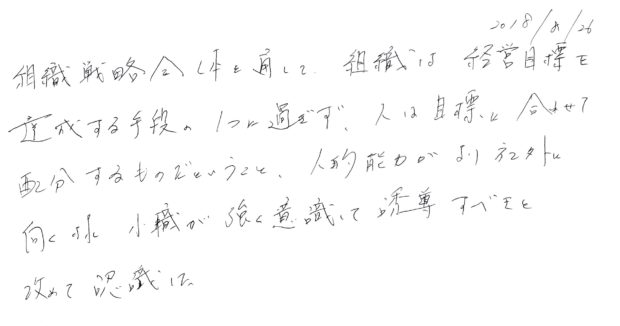 2018/8/26
組織戦略全体を通して、組織は経営目標を
達成する手段の1つに過ぎず、人は目標に合わせて
配分するものだということ、人的能力がより社外に
向く様 小職が強く意識して誘導すべきと
改めて認識した